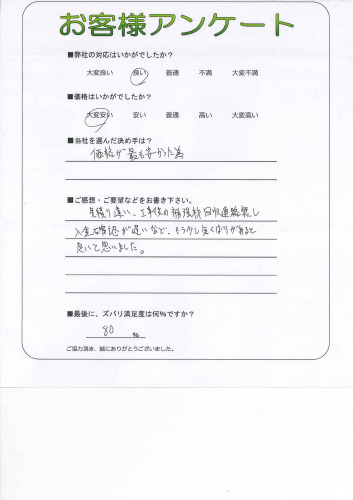 お客様アンケート
■弊社の対応はいかがでしたか？
大変良い 良い 普通 不満 大変不満
■価格はいかがでしたか？
大変安い 安い 普通 高い 大変高い
■当社を選んだ決め手は？
価格が最も安かった為
■ご感想・ご要望などをお書き下さい。
見積り違い、工事後の補強材回収連絡無し
入金確認が遅いなど、もう少し気くばりがあると
良いと思いました。
■最後に、ズバリ満足度は何%ですか？
80 %
ご協力頂き、誠にありがとうございました。